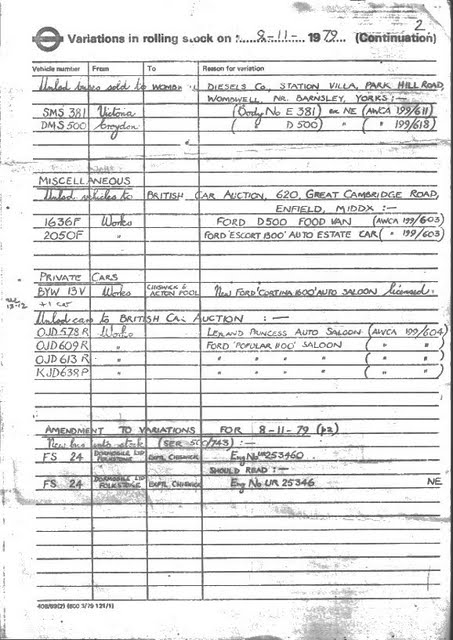 2
Variations in rolling stock on 8-11- 1979 (Continuation)
Vehicle number From To Reason for variation
Unlsd buses sold to WOMBW L DIESELS Co, STATION VILLA, PARK HILL ROAD,
WOMBWELL, NR. BARNSLEY, YORKS :-
SMS 381 Victoria (Body No E 381) ex NE (AWCA 199/611)
DMS 500 Croydon ( " D 500) " ( " 199/618)
MISCELLANEOUS
Unlsd vehicles to BRITISH CAR AUCTION, 620, GREAT CAMBRIDGE ROAD,
ENFIELD, MIDDX :-
1636F Works FORD D500 FOOD VAN (AWCA 199/603)
2050F " FORD 'ESCORT 1300' AUTO ESTATE CAR ( " 199/603)
PRIVATE CARS
BYW 13V Works CHISWICK & ACTON POOL New FORD 'CORTINA 1600' AUTO SALOON licensed.
13-12
Unlsd cars to BRITISH CAR AUCTION :-
OJD 578 R Works LEYLAND PRINCESS AUTO SALOON (AWCA 199/604)
OJD 609 R " FORD 'POPULAR 1100' SALOON ( " " )
OJD 613 R " " " " " ( " " )
KJD 638 P " " " " " ( " " )
AMENDMENT TO VARIATIONS FOR 8-11-79 (p2)
New bus into stock (SER 5CC/743) :-
FS 24 DORMOBILE LTD FOLKESTONE EXPTL CHISWICK Eng No UR 253460
SHOULD READ :-
FS 24 DORMOBILE LTD FOLKESTONE EXPTL CHISWICK Eng No UR 25346 NE
408/89(2) (600 3/79 121/1)